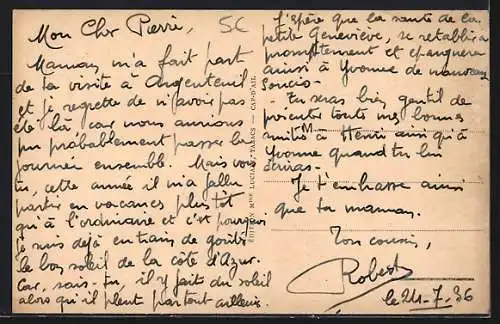 Mon Cher Pierre,
Maman m'a fait part
de la visite à Argenteuil
et je regrette de n'avoir pas
été là car nous aurions
pu probablement passer la
journée ensemble. Mais vois
tu, cette année il m'a fallu
partir en vacances plus tôt
qu'à l'ordinaire et c'est pourquoi
je suis déjà en train de goûter
le bon soleil de la côte d'Azur.
Car, sais-tu, il y fait du soleil
alors qu'il pleut partout ailleurs.
5€
J'espère que la santé de la
petite Geneviève, se rétablira
promptement et épargnera
ainsi à Yvonne de nouveaux
soucis.
- Tu seras bien gentil de
présenter toutes mes bonnes
amitiés à Henri ainsi qu'à
Yvonne quand tu lui
écriras.
Je t'embrasse ainsi
que ta maman.
Ton cousin,
Robert
le 24-7-36
CAP-D'AIL